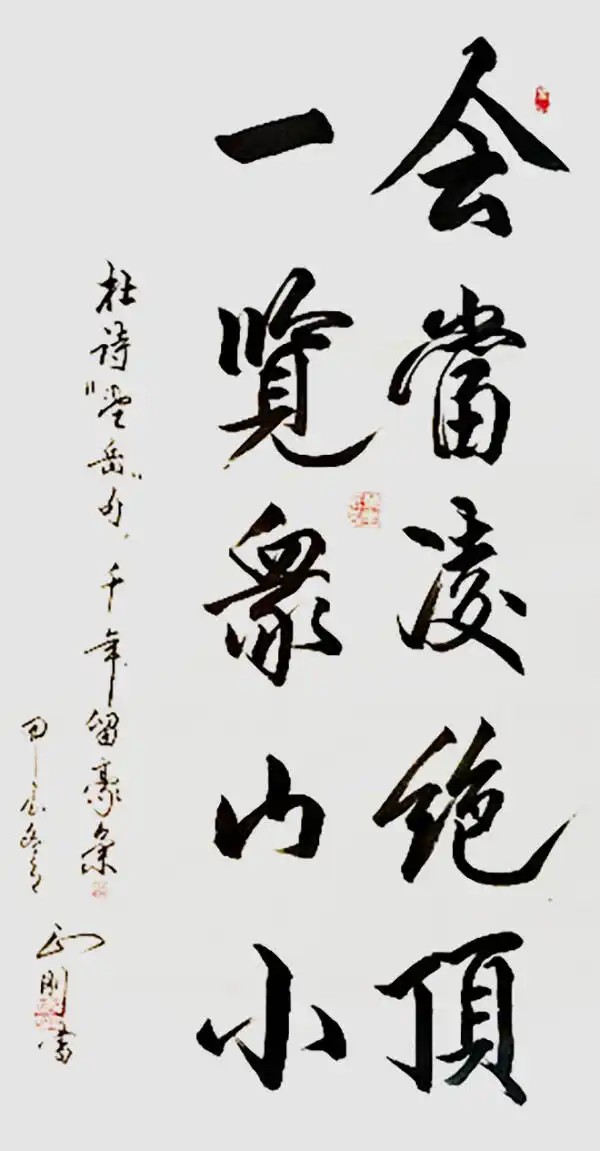 会當凌絶頂
一覽眾山小
杜詩"望岳"句，千年留豪
剛書